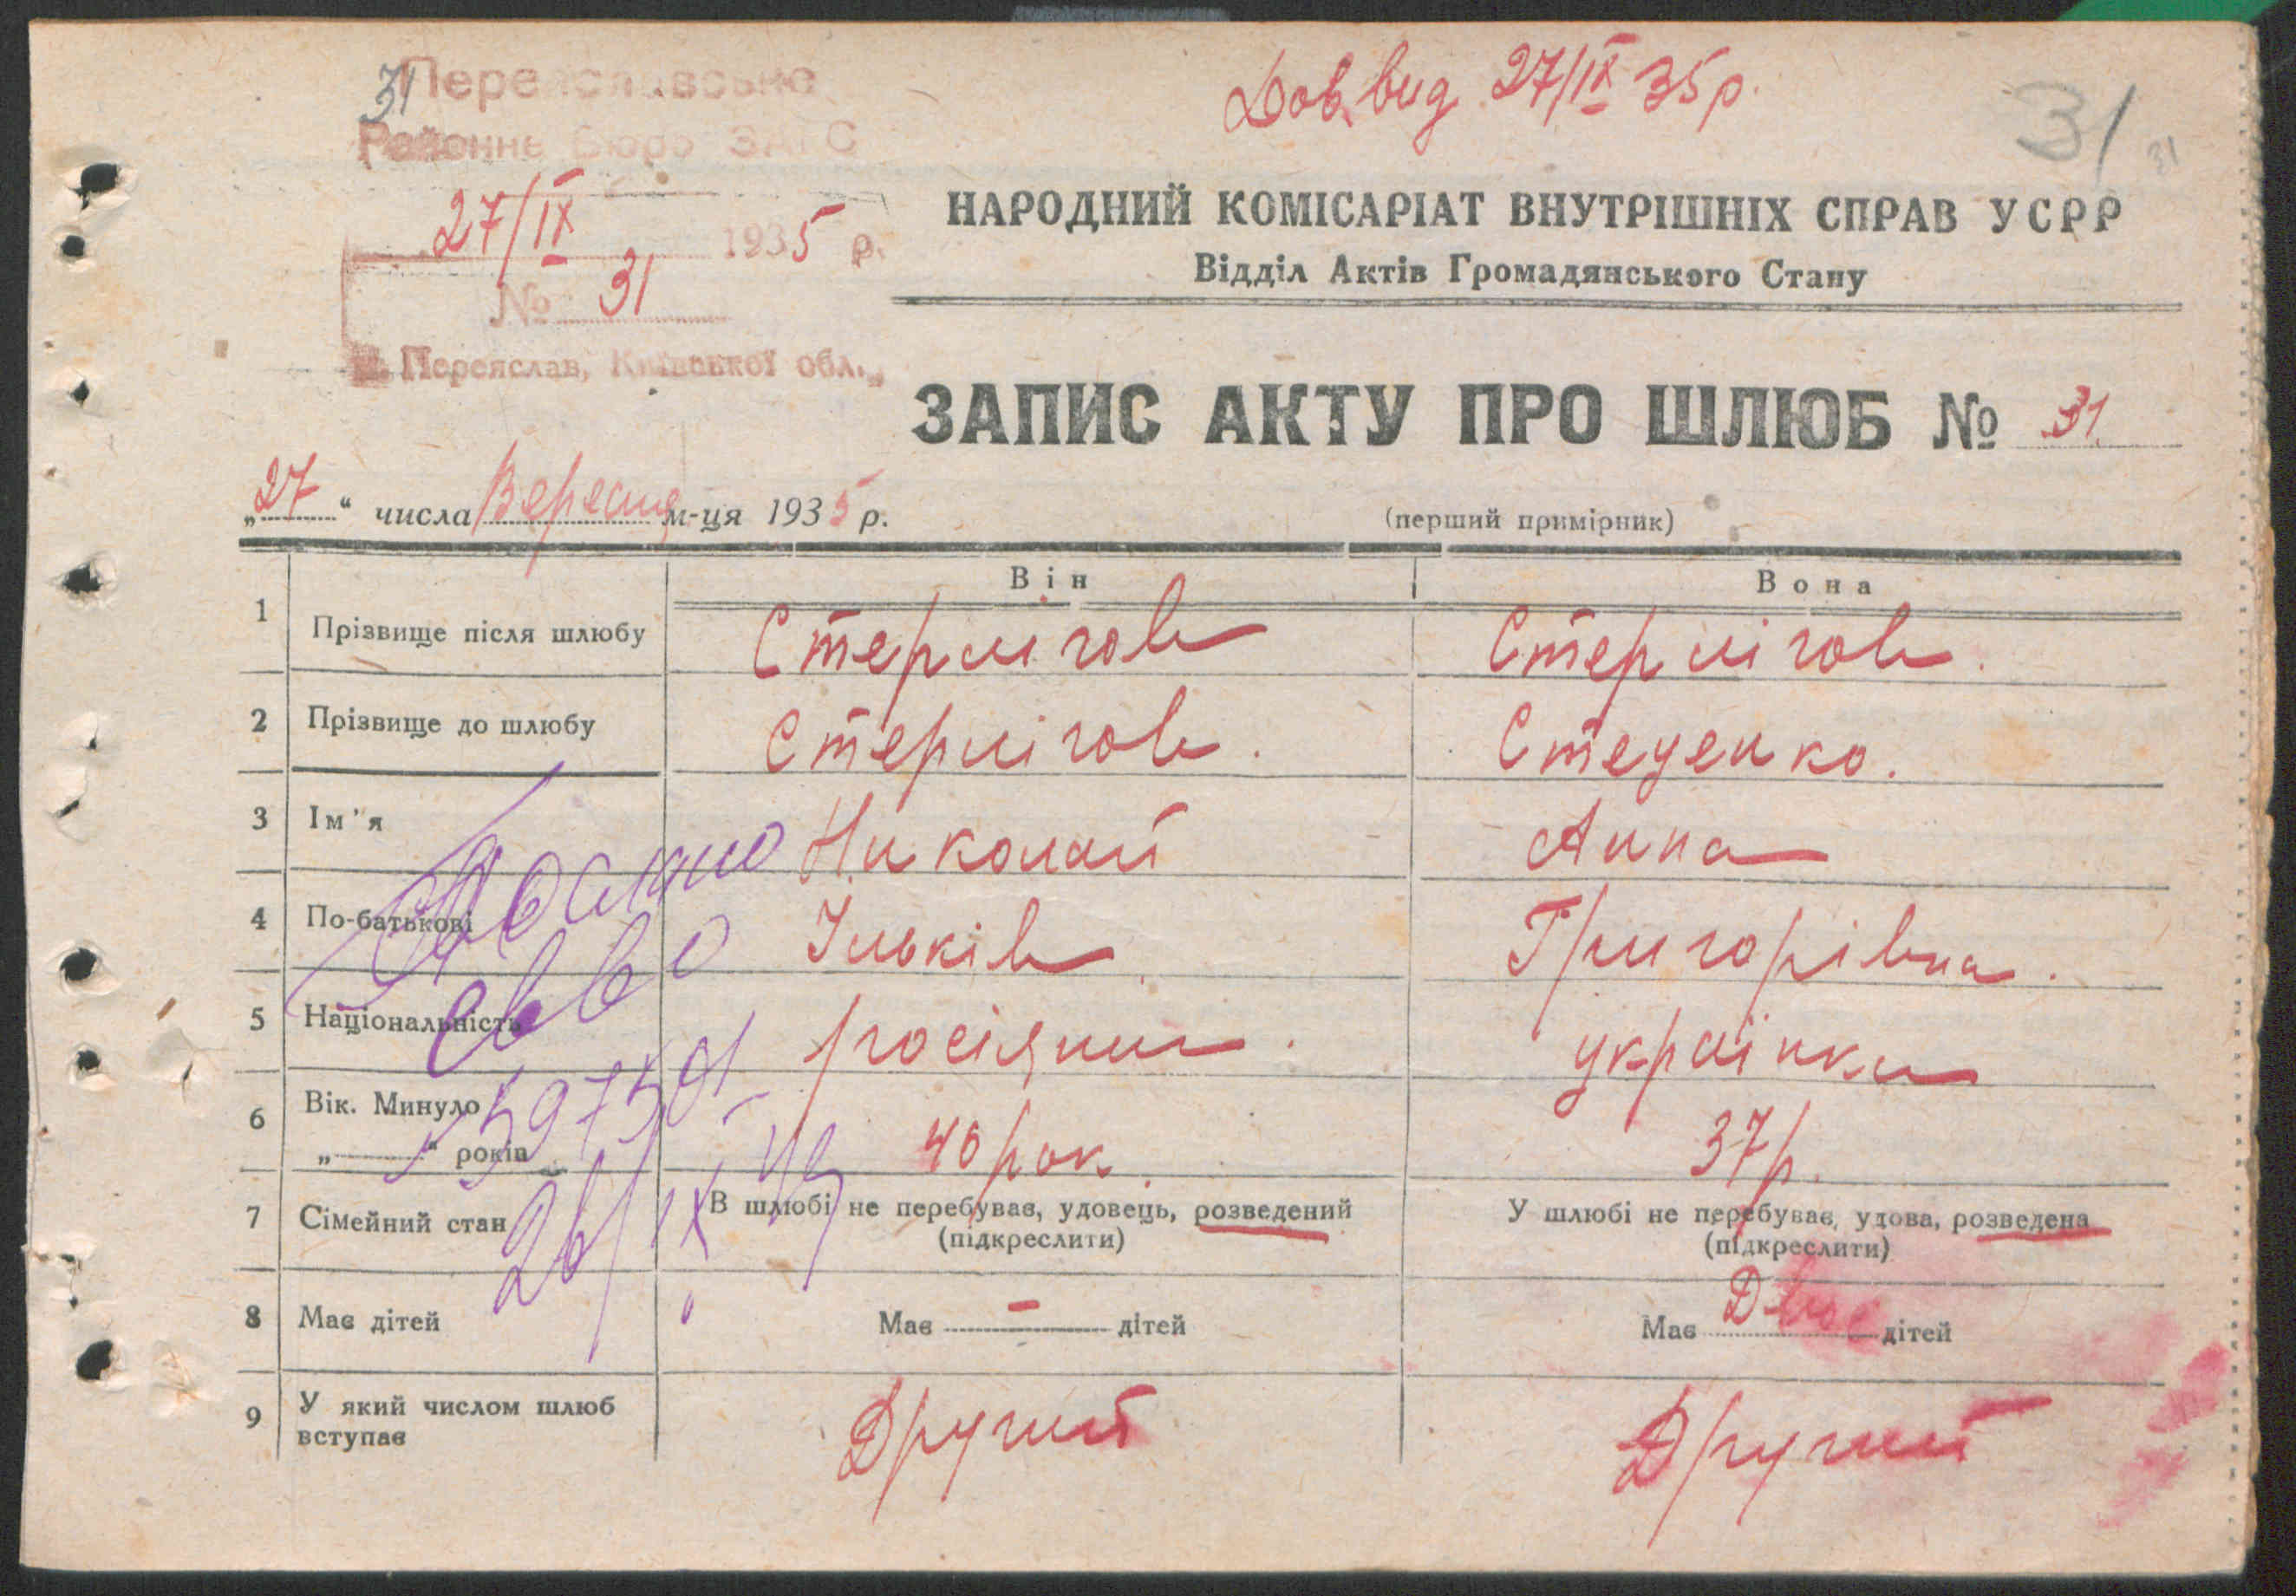 31
Переяславське
Районне Бюро ЗАГС
Дов. вид 27/IX 35 р.
31
31
27/IX 1935 р.
№ 31
м. Переяслав, Київської обл.
НАРОДНИЙ КОМІСАРІАТ ВНУТРІШНІХ СПРАВ УСРР
Відділ Актів Громадянського Стану
ЗАПИС АКТУ ПРО ШЛЮБ № 31
„27“ числа Вересня м-ця 1935 р.
(перший примірник)
Він Вона
1 Прізвище після шлюбу Стерлігов Стерлігов.
2 Прізвище до шлюбу Стерлігов. Стеценко.
3 Ім'я Николай Анна
4 По-батькові Ільків Григорівна.
5 Національність росіянин. українка
6 Вік. Минуло „ “ років 40 рок. 37 р.
7 Сімейний стан В шлюбі не перебував, удовець, розведений (підкреслити) У шлюбі не перебуває, удова, розведена (підкреслити)
8 Має дітей Має — дітей Має Двоє дітей
9 У який числом шлюб вступає Другий Другий
26/IX